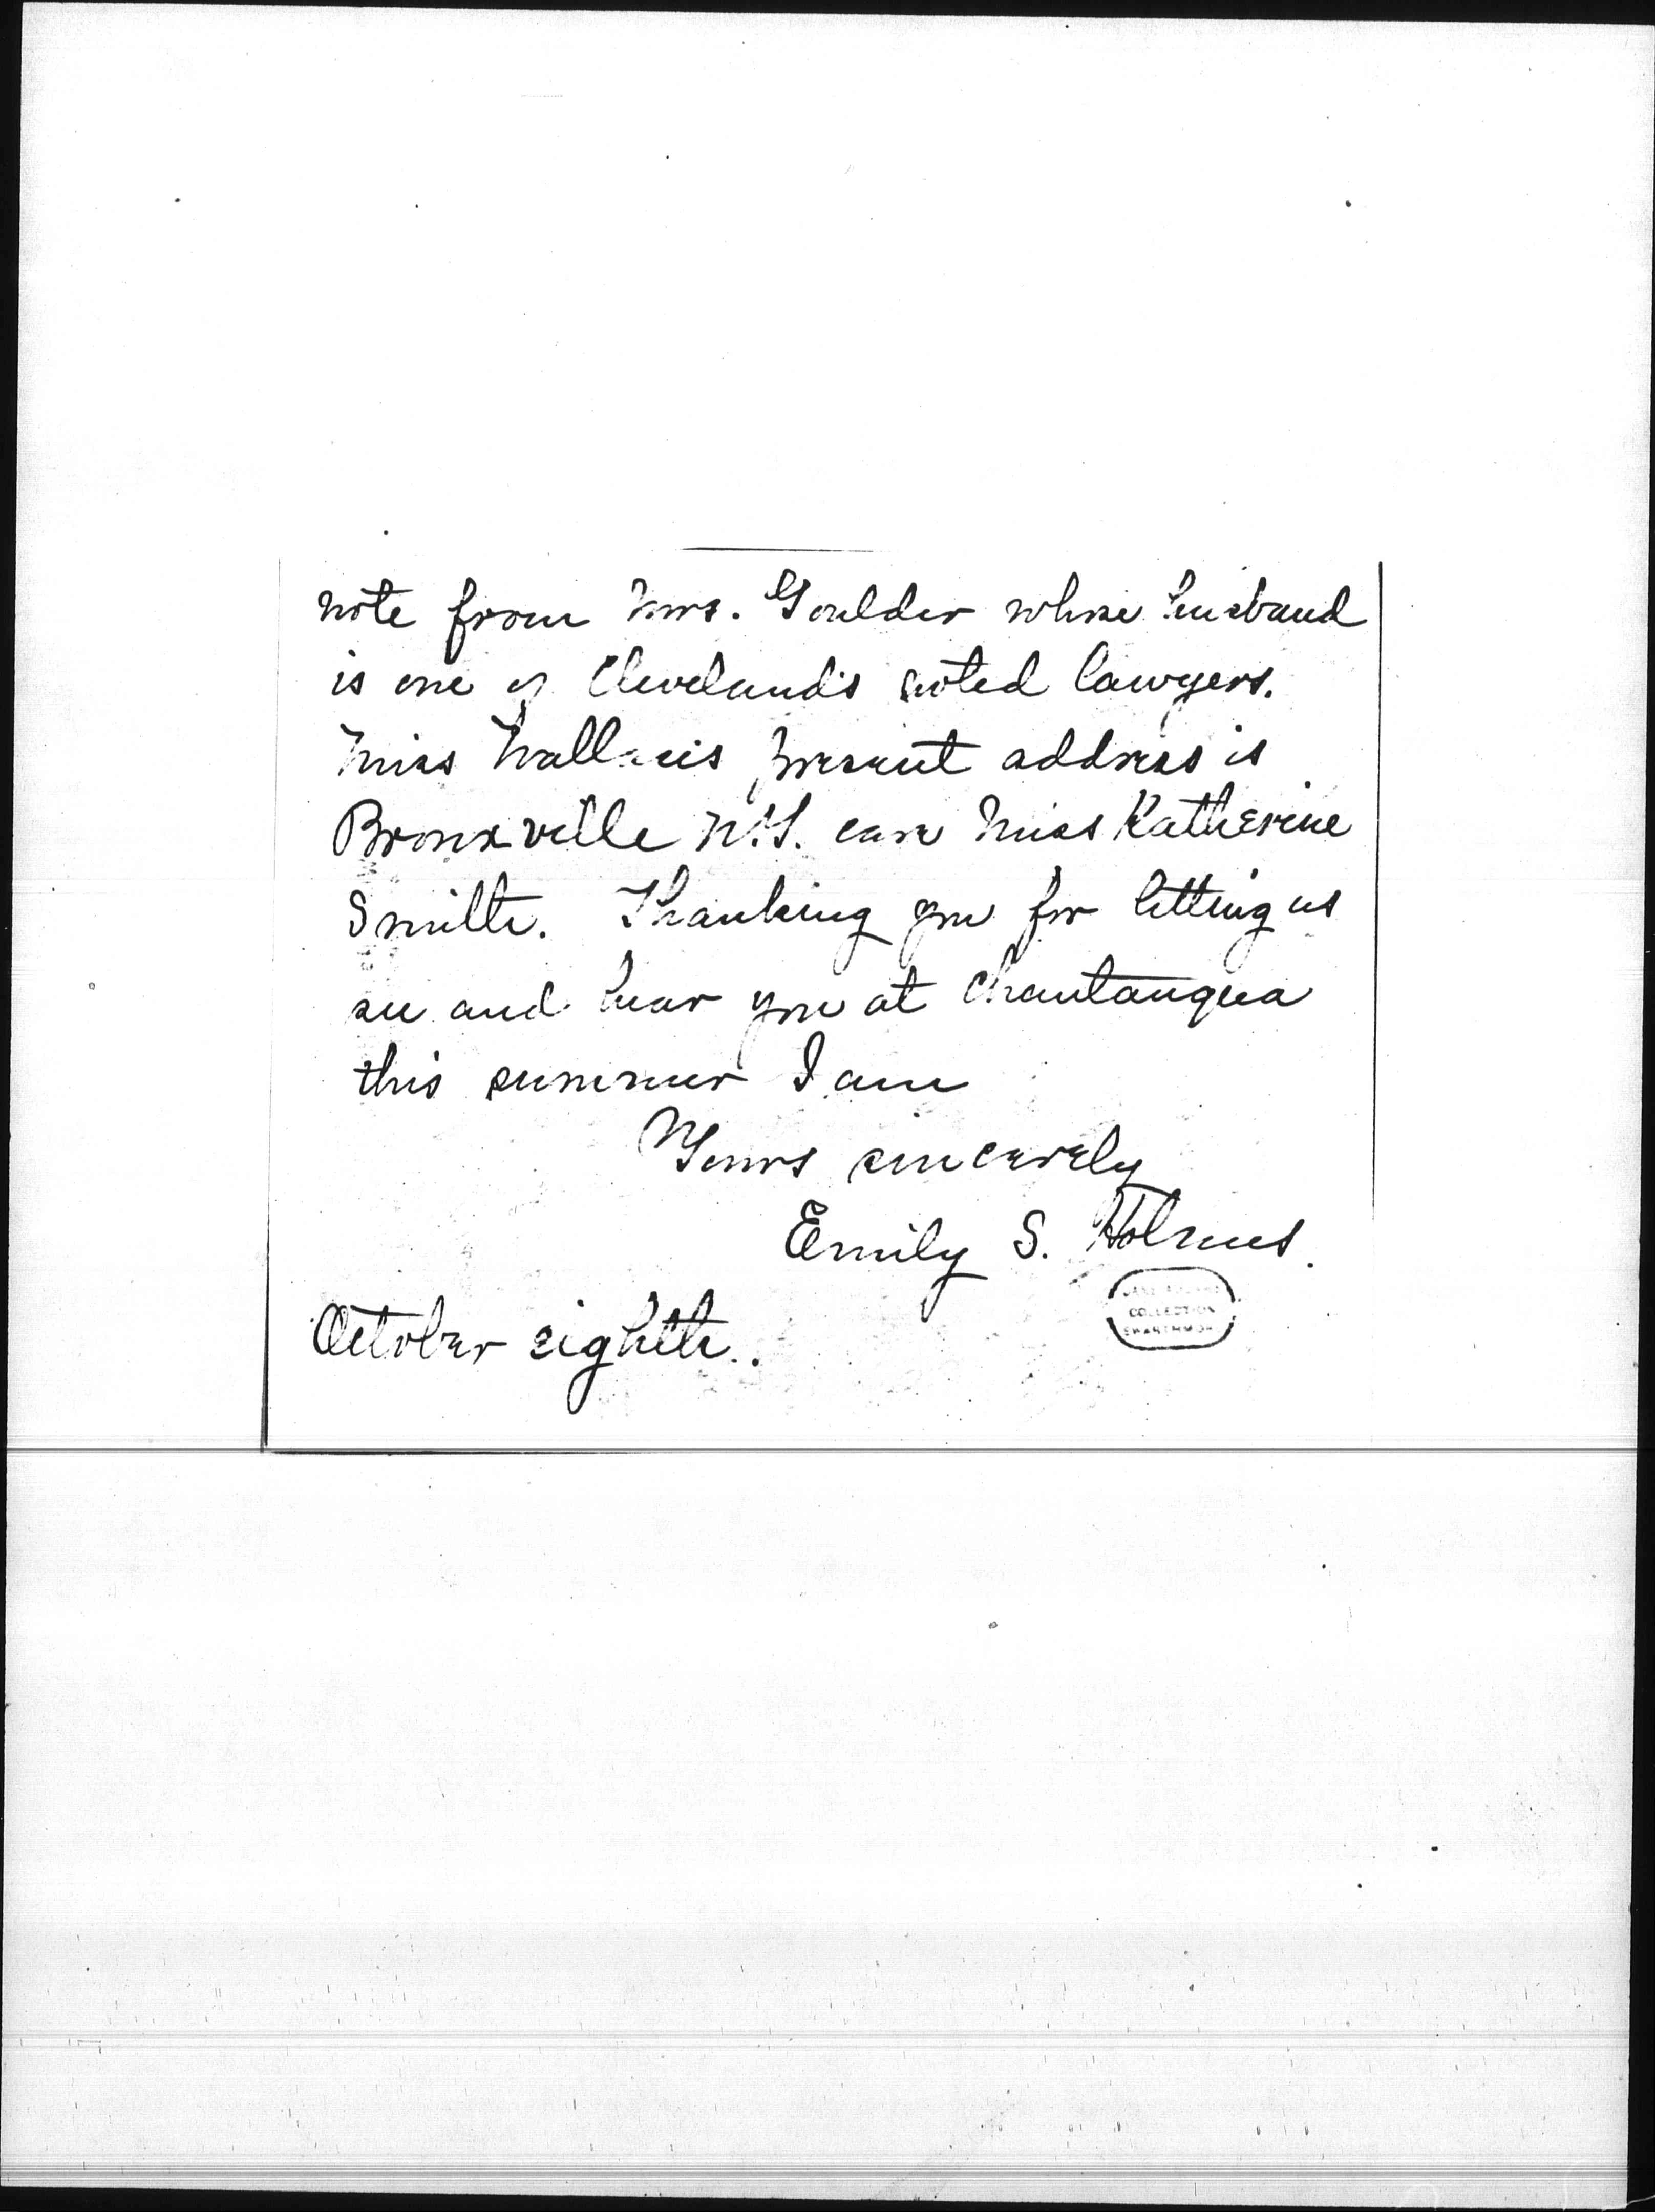 note from Mrs. Goulder whose husband
is one of Cleveland's noted lawyers.
Miss present address is
Bronxville N.Y. care Miss Katherine
Smith. Thanking you for letting us
see and hear you at Chautauqua
this summer I am
Yours sincerely
Emily S. Holmes.
COLLECTION
October eighth.